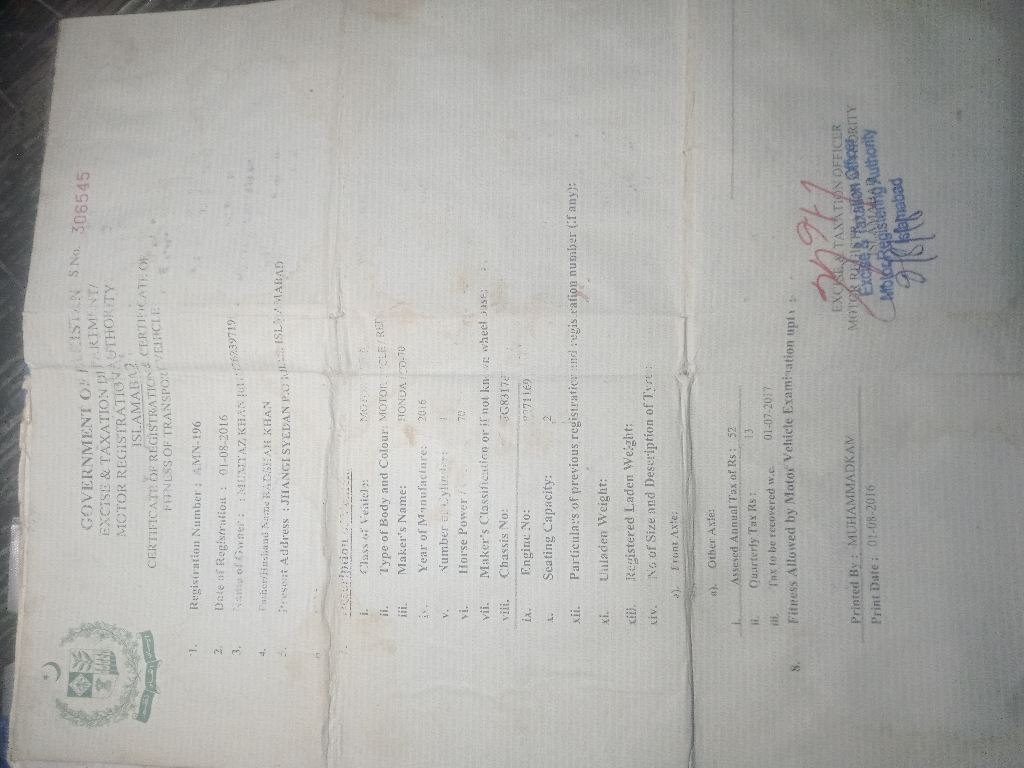 GOVERNMENT OF PAKISTAN S No. 306545
EXCISE & TAXATION DEPARTMENT/
MOTOR REGISTRATION AUTHORITY
ISLAMABAD
CERTIFICATE OF REGISTRATION & CERTIFICATE OF
FITNESS OF TRANSPORT VEHICLE
1. Registration Number : AMN-196
2. Date of Registration : 01-08-2016
3. Name of Owner : : MUMTAZ KHAN
4. Father/Husband Name BADSHAH KHAN
5. Present Address : JHANGI SYEDAN ISLAMABAD
7.
i. Class of Vehicle:
ii. Type of Body and Colour: MOTOR CYCLE / RED
iii. Maker's Name: HONDA CD-70
iv. Year of Manufacture: 2016
v. Number of Cylinder: 1
vi. Horse Power 70
vii. Maker's Classification or if not known wheel base:
viii. Chassis No:
ix. Engine No:
x. Seating Capacity: 2
xii. Particulars of previous registration and registration number (if any):
xi. Unladen Weight:
xiii. Registered Laden Weight:
xiv. No of Size and Description of Tyre:
a). Front Axle:
a). Other Axle:
i. Assesed Annual Tax of Rs : 52
ii. Quarterly Tax Rs : 13
iii. Tax to be recovered w.e. 01-07-2017
8. Fitness Allowed by Motor Vehicle Examination upto :
EXCISE & TAXATION OFFICER
MOTOR REGISTRATION AUTHORITY
ISLAMABAD
Excise & Taxation Officer
Motor Registering Authority
Islamabad
Printed By : MUHAMMADKAV
Print Date : 01-08-2016